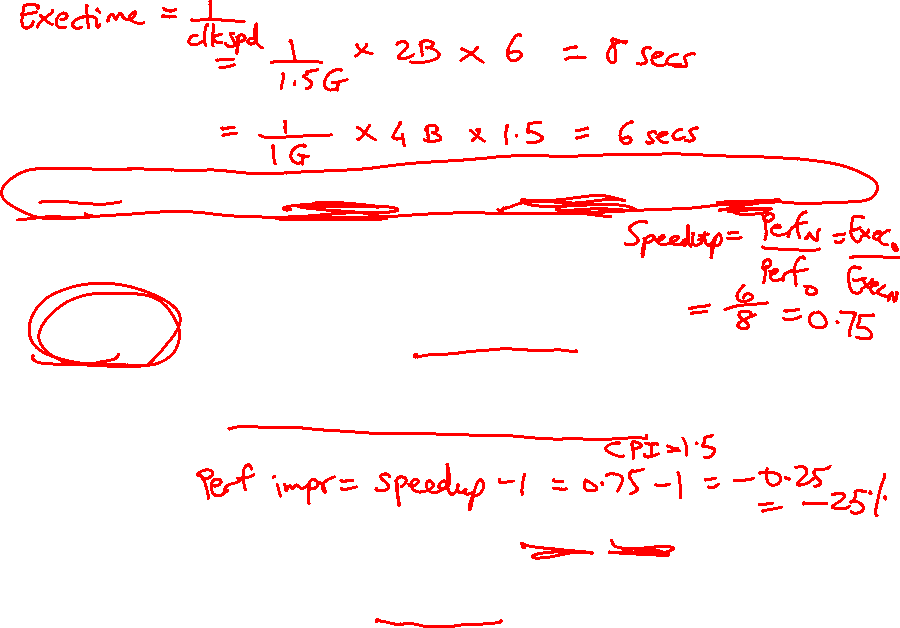 Exectime = 1/clkspd
= 1/1.5G × 2B × 6 = 8 secs
= 1/1G × 4B × 1.5 = 6 secs
Speedup = PerfN/PerfO = ExecO/ExecN
= 6/8 = 0.75
CPI=1.5
Perf impr = speedup -1 = 0.75 -1 = -0.25
= -25%